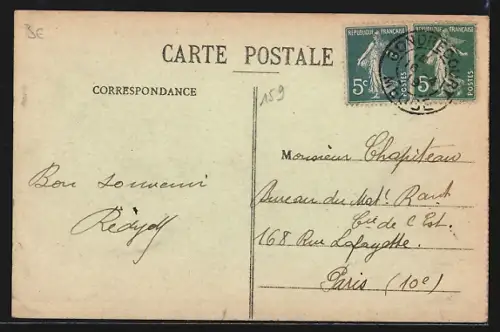 3E
REPUBLIQUE FRANÇAISE
REPUBLIQUE FRANÇAISE
5c
POSTES
5c
POSTES
GONDRECOURT
MEUSE
CARTE POSTALE
CORRESPONDANCE
159
Bon souvenir
Monsieur Chapiteau
Bureau du Matel Rant
Cie de l'Est.
168 Rue Lafayette.
Paris (10e)